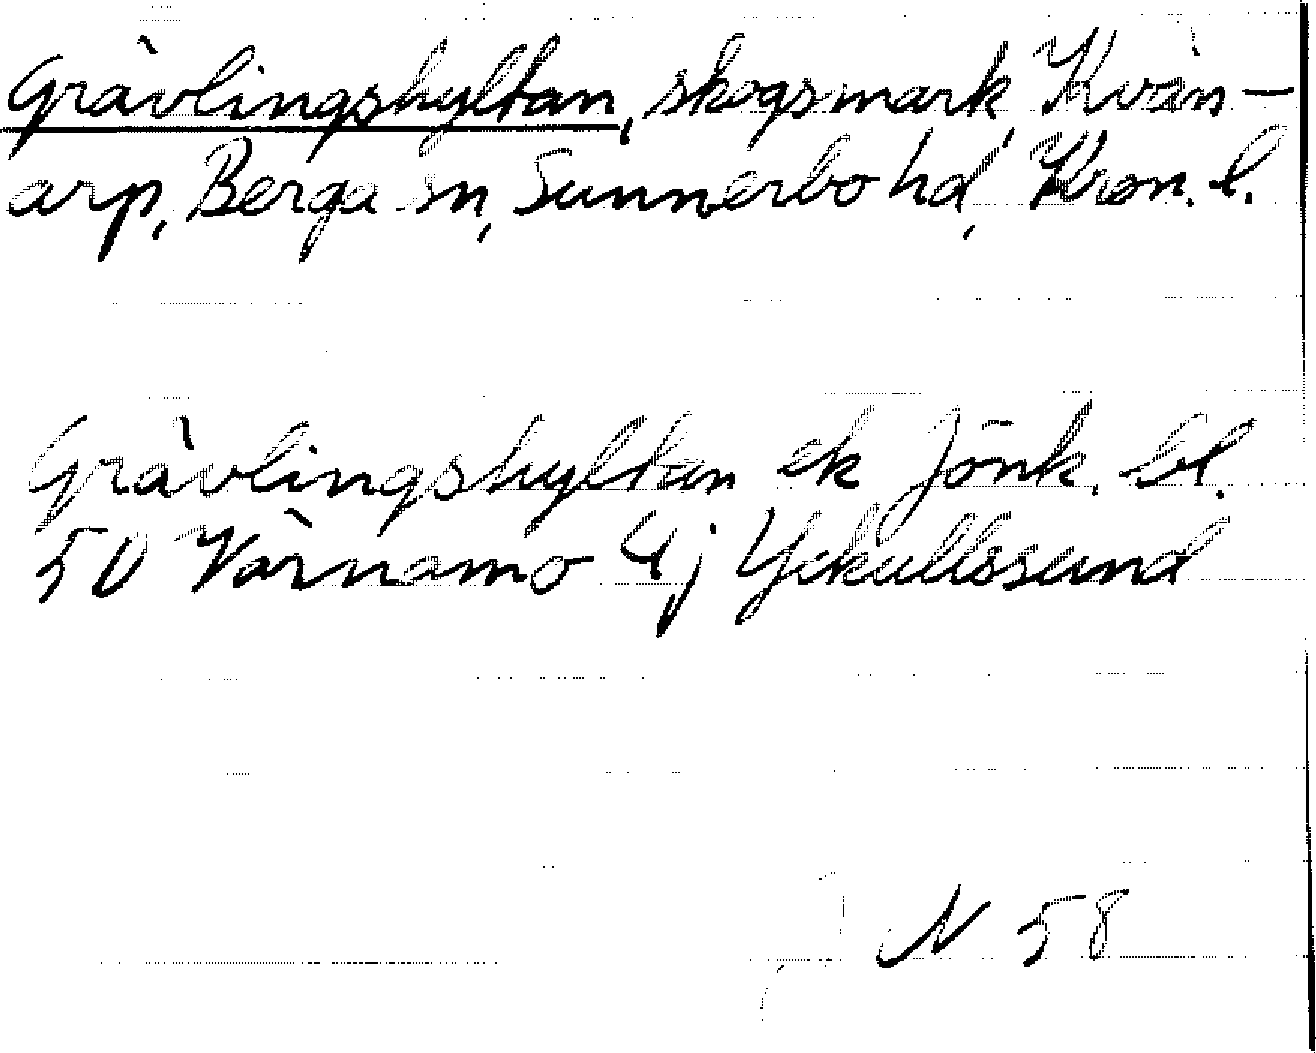 Grävlingshyltan, skogsmark, Kvän-
arp, Berga sn, Sunnerbo hd, Kron. l.
Grävlingshyltan ek Jönk. bl.
5D Värnamo 4j Yxkullssund
N 58